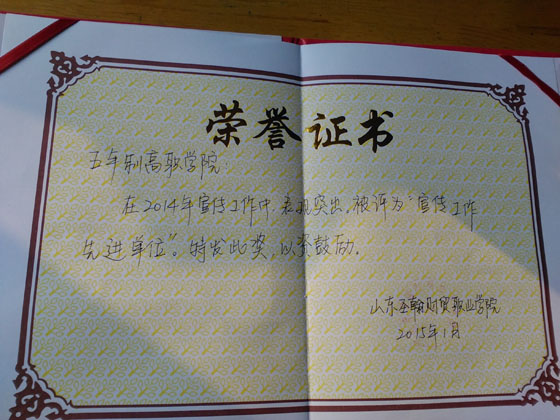 荣誉证书
五年制高职学院:
在2014年宣传工作中,表现突出,被评为“宣传工作
先进单位”。特发此奖,以资鼓励。
山东丞翰财贸职业学院
2015年1月